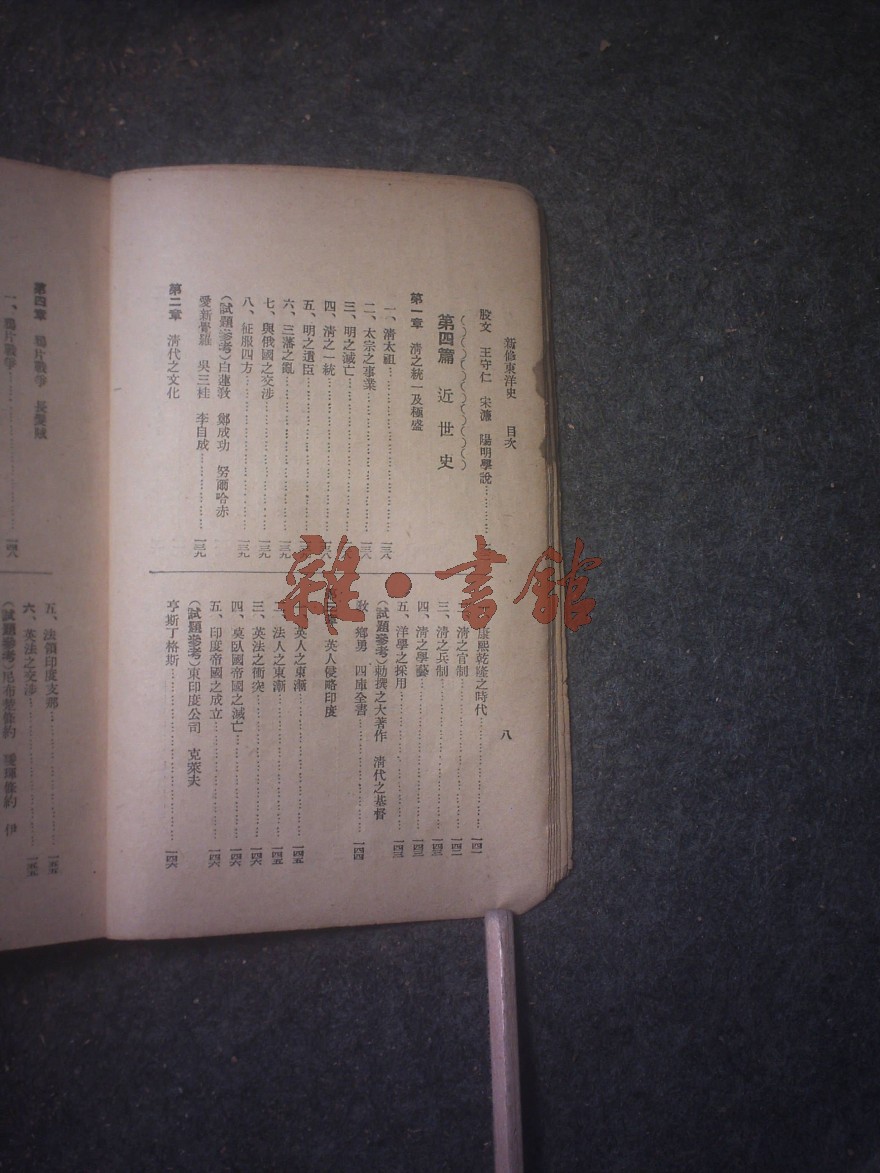 新修東洋史 目次
八
股文 王守仁 宋濂 陽明學說
第四篇 近世史
第一章 清之統一及極盛
一、清太祖 一三八
二、太宗之事業 一三八
三、明之滅亡
四、清之一統
五、明之遺臣
六、三藩之亂 一三九
七、與俄國之交涉 一三九
八、征服四方 一三九
(試題參考)白蓮教 鄭成功 努爾哈赤
愛新覺羅 吳三桂 李自成 一三九
第二章 清代之文化
康熙乾隆之時代 一四一
清之官制 一四二
三、清之兵制 一四三
四、清之學藝 一四三
五、洋學之採用 一四三
(試題參考)勅撰之大著作 清代之基督
教 鄉勇 四庫全書 一四四
英人侵略印度
英人之東漸 一四五
二、法人之東漸 一四五
三、英法之衝突 一四六
四、莫臥國帝國之滅亡 一四六
五、印度帝國之成立 一四六
(試題參考)東印度公司 克萊夫
亨斯丁格斯 一四六
第四章 鴉片戰爭 長髮賊
一、鴉片戰爭 一四八
五、法領印度支那 一五五
六、英法之交涉 一五五
(試題參考)尼布楚條約 璦琿條約 伊
雜·書館